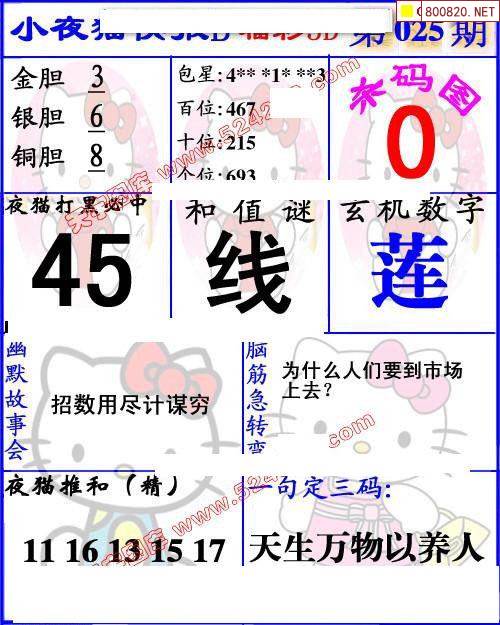 800820.NET
小夜猫快报D 福彩3D 第025期
金胆 3
银胆 6
铜胆 8
包星:4** *1* **3
百位:467
十位:215
个位:693
杀码图
0
夜猫打黑必中
45
和值谜
线
玄机数字
莲
幽默故事会
招数用尽计谋穷
脑筋急转弯
为什么人们要到市场
上去?
夜猫推和(精)
11 16 13 15 17
一句定三码:
天生万物以养人